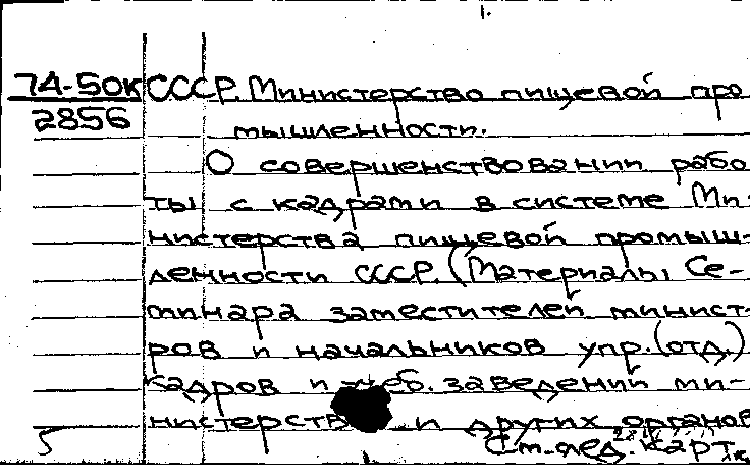 74-50к СССР. Министерство пищевой про
2856 мышленности.
О совершенствовании рабо
ты с кадрами в системе Ми-
нистерства пищевой промыш-
ленности СССР. (Материалы Се-
минара заместителей минист
ров и начальников упр. (отд.)
кадров и учеб. заведений ми-
нистерств и других органов
5 См. след. карт.